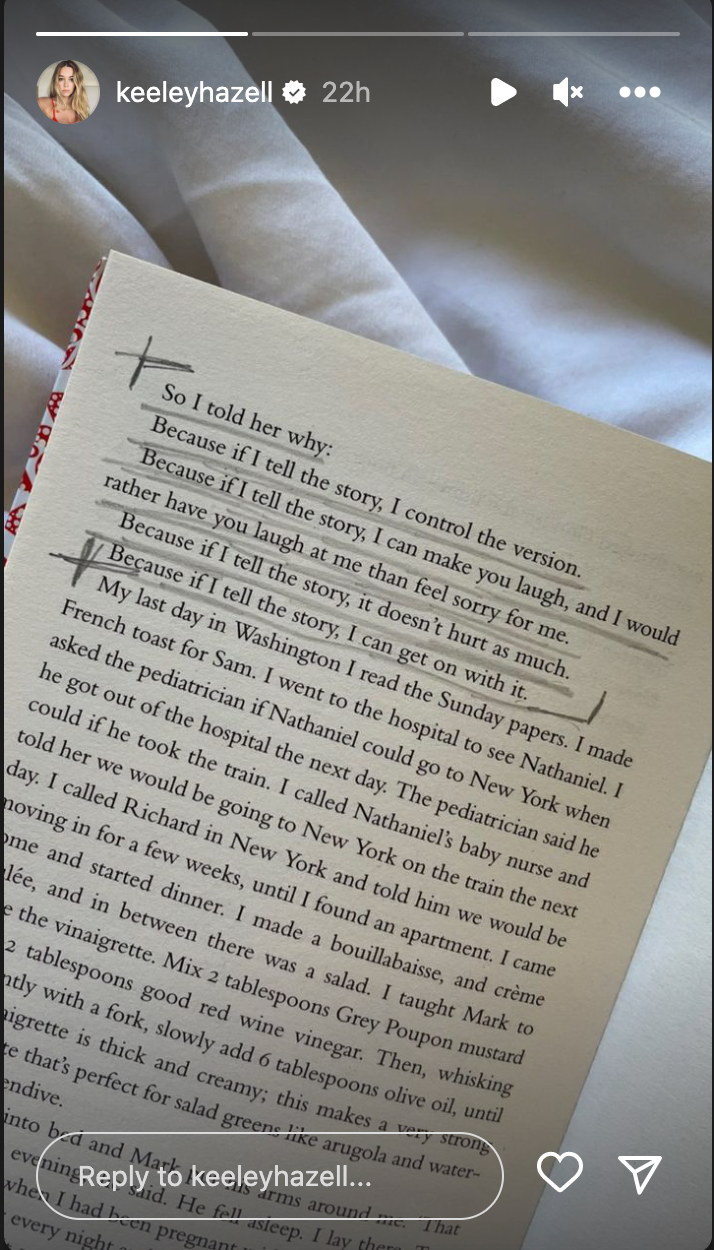 keeleyhazell 22h
So I told her why:
Because if I tell the story, I control the version.
Because if I tell the story, I can make you laugh, and I would
rather have you laugh at me than feel sorry for me.
Because if I tell the story, it doesn't hurt as much.
Because if I tell the story, I can get on with it.
My last day in Washington I read the Sunday papers. I made
French toast for Sam. I went to the hospital to see Nathaniel. I
asked the pediatrician if Nathaniel could go to New York when
he got out of the hospital the next day. The pediatrician said he
could if he took the train. I called Nathaniel's baby nurse and
told her we would be going to New York on the train the next
day. I called Richard in New York and told him we would be
moving in for a few weeks, until I found an apartment. I came
ome and started dinner. I made a bouillabaisse, and crème
lée, and in between there was a salad. I taught Mark to
e the vinaigrette. Mix 2 tablespoons Grey Poupon mustard
2 tablespoons good red wine vinegar. Then, whisking
ntly with a fork, slowly add 6 tablespoons olive oil, until
aigrette is thick and creamy; this makes a very strong
te that's perfect for salad greens like arugola and water-
endive.
into bed and Mark his arms around me. "That
evening, said. He fell asleep. I lay there.
when I had been pregnant
every night
Reply to keeleyhazell...